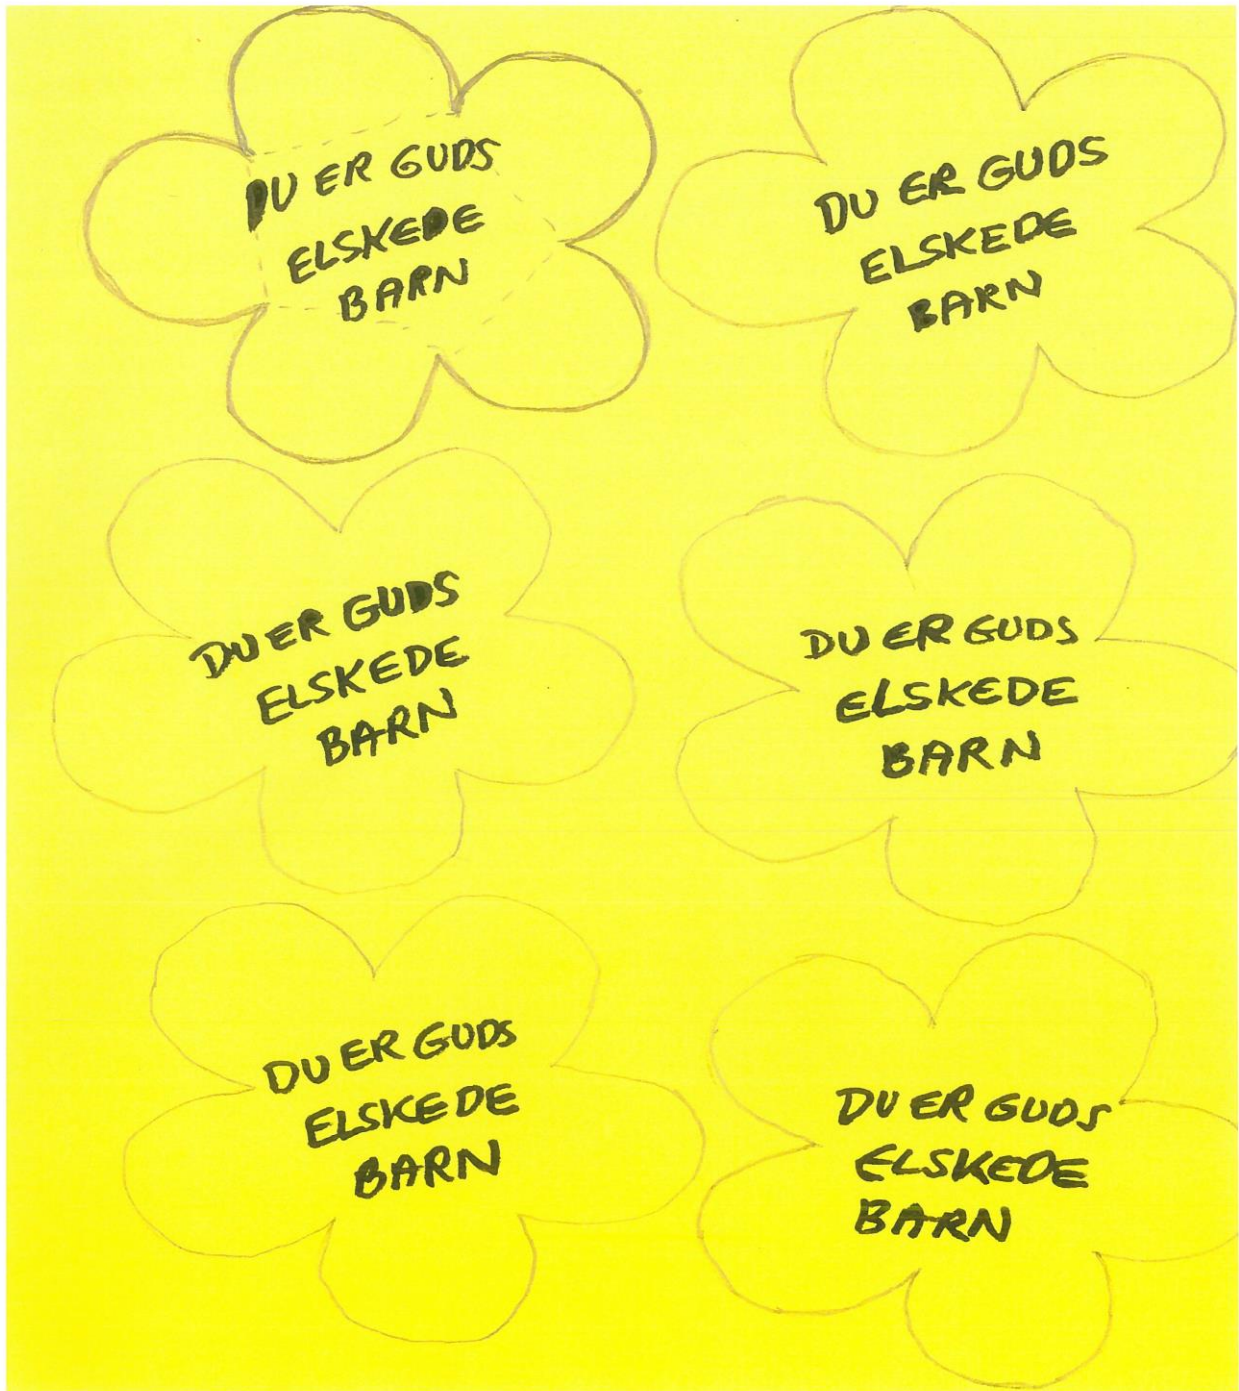 DU ER GUDS
ELSKEDE
BARN
DU ER GUDS
ELSKEDE
BARN
DU ER GUDS
ELSKEDE
BARN
DU ER GUDS
ELSKEDE
BARN
DU ER GUDS
ELSKEDE
BARN
DU ER GUDS
ELSKEDE
BARN